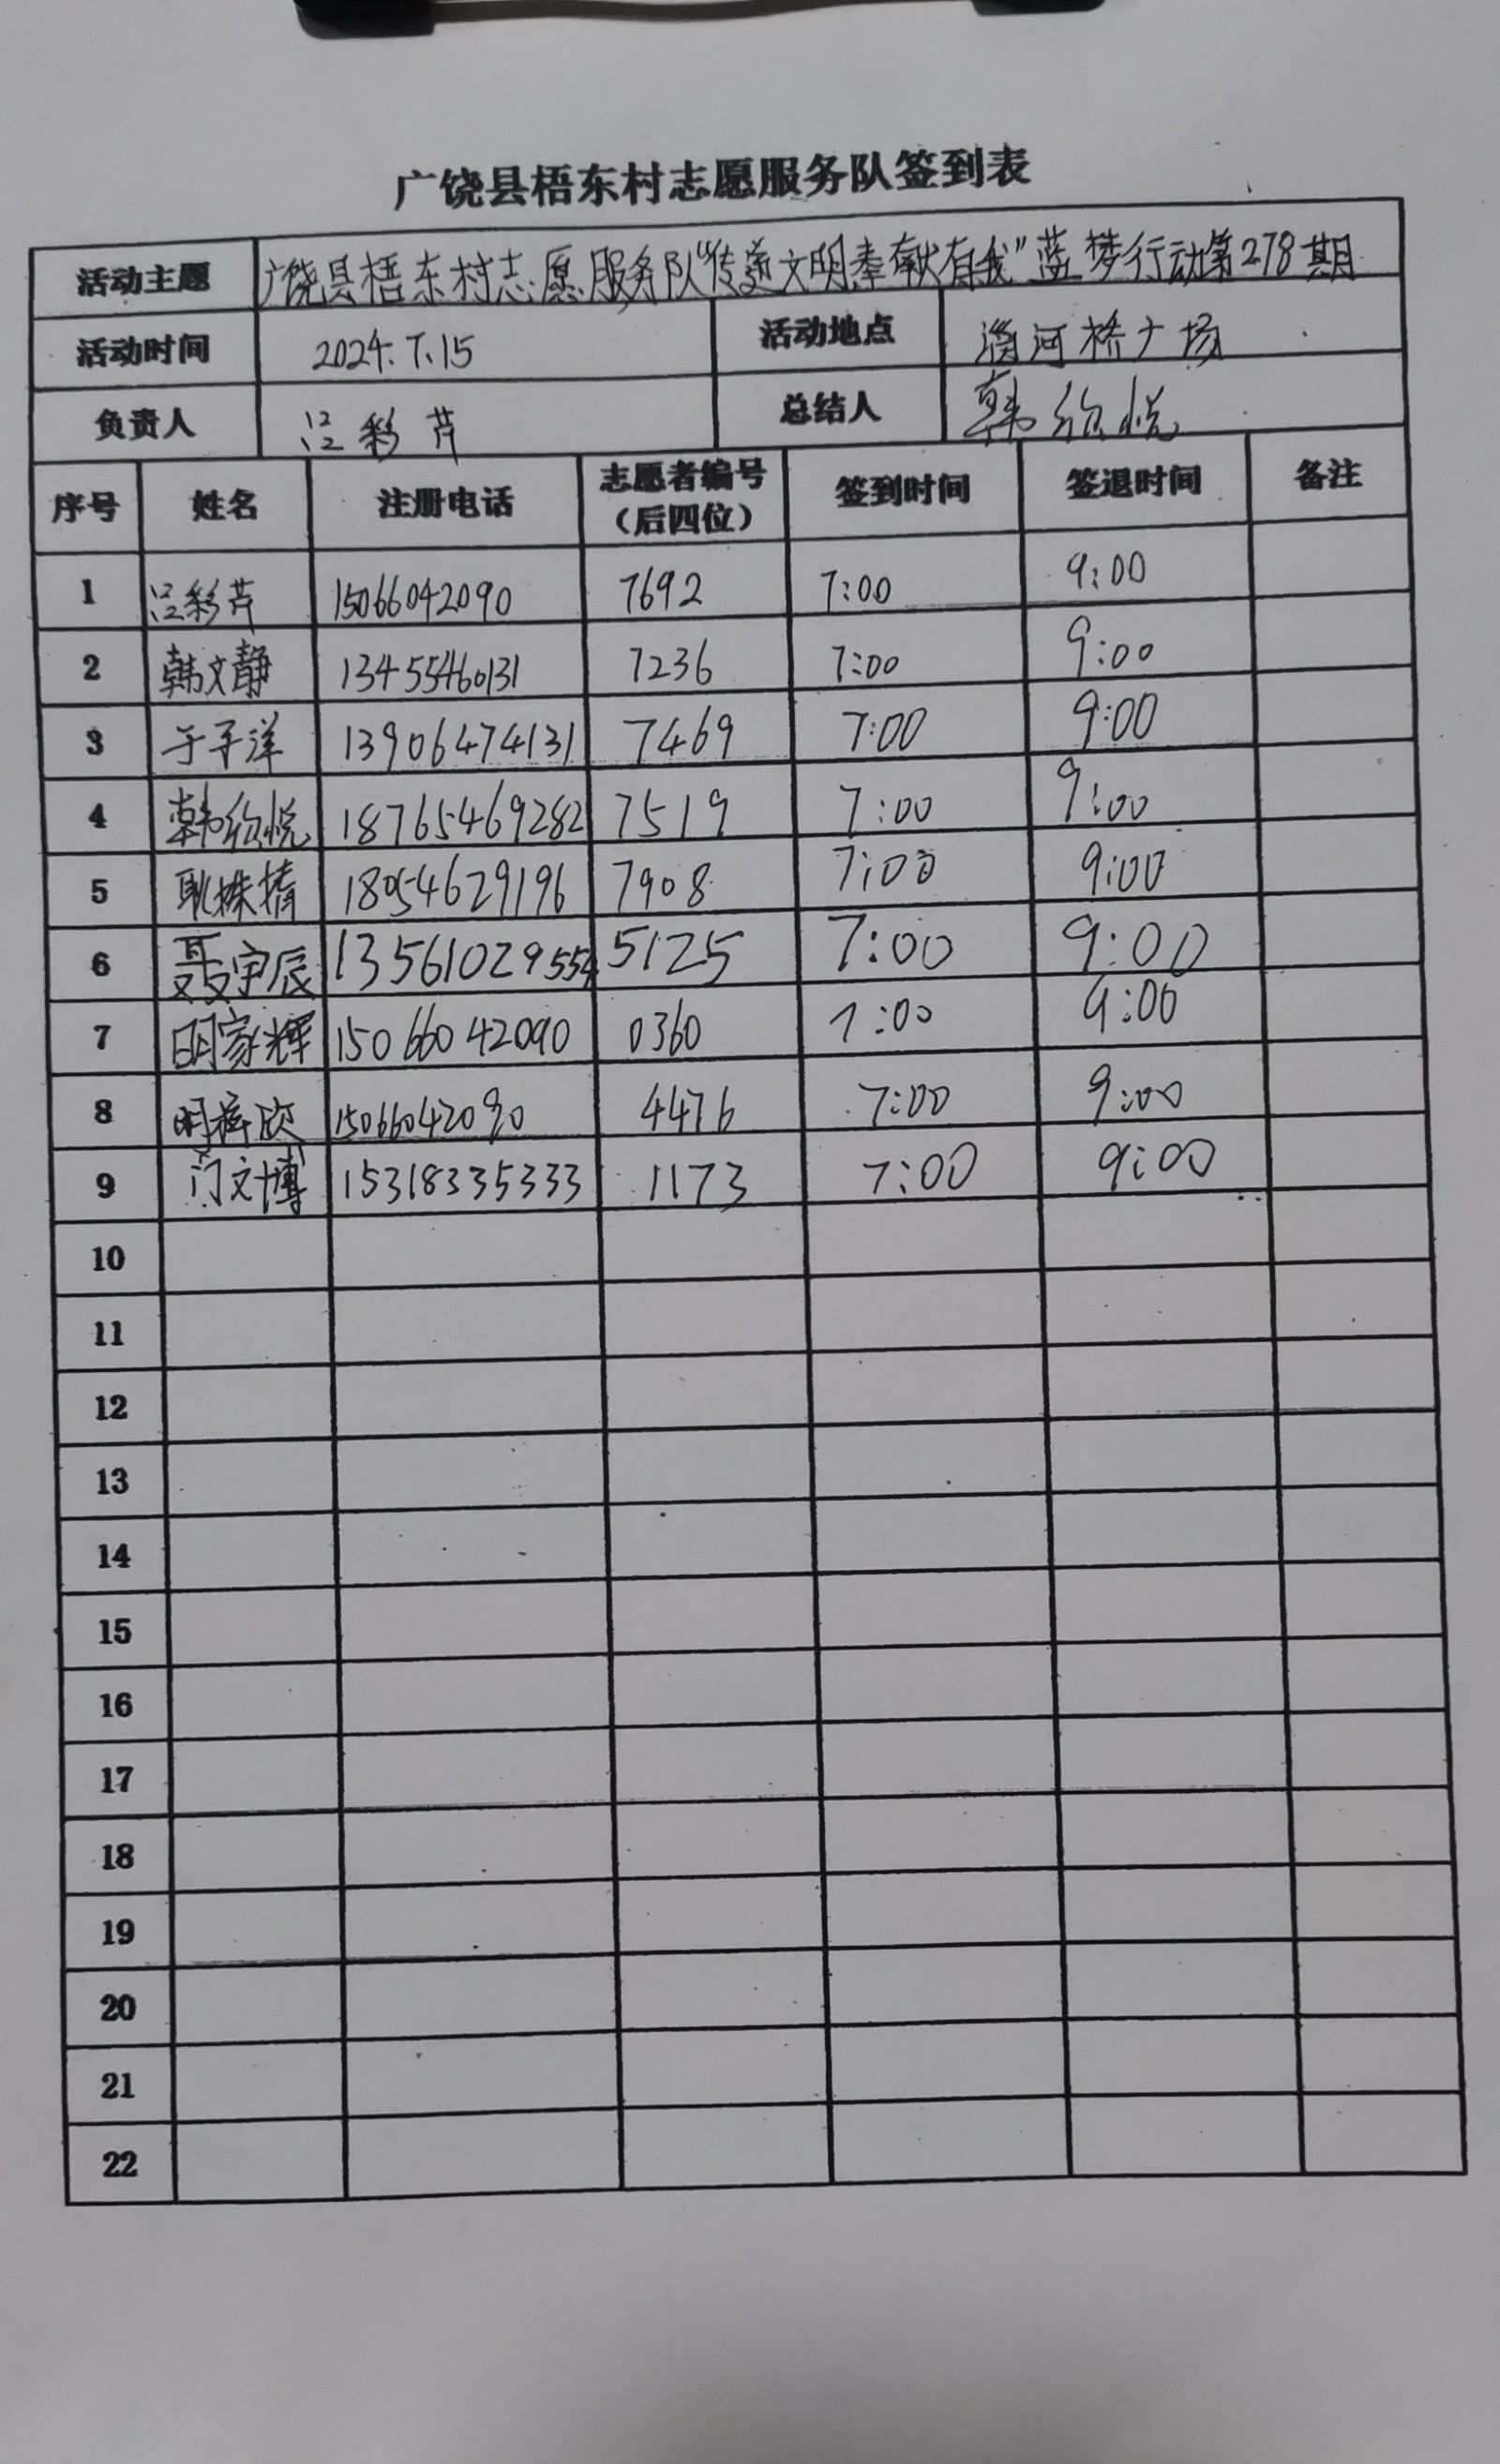 广饶县梧东村志愿服务队签到表
活动主题 广饶县梧东村志愿服务队“传递文明奉献有我”蓝梦行动第278期
活动时间 2024.7.15 活动地点 淄河桥广场
负责人 吕彩芹 总结人 韩欣悦
序号 姓名 注册电话 志愿者编号（后四位） 签到时间 签退时间 备注
1 吕彩芹 15066042090 7692 7:00 9:00
2 韩文静 13455460131 7236 7:00 9:00
3 于子洋 13906474131 7469 7:00 9:00
4 韩欣悦 18765469282 7519 7:00 9:00
5 耿姝婧 18054629196 7908 7:00 9:00
6 聂宇辰 13561029554 5125 7:00 9:00
7 明家辉 15066042090 0360 7:00 9:00
8 明梓欣 15066042090 4476 7:00 9:00
9 门文博 15318335333 1173 7:00 9:00
10
11
12
13
14
15
16
17
18
19
20
21
22